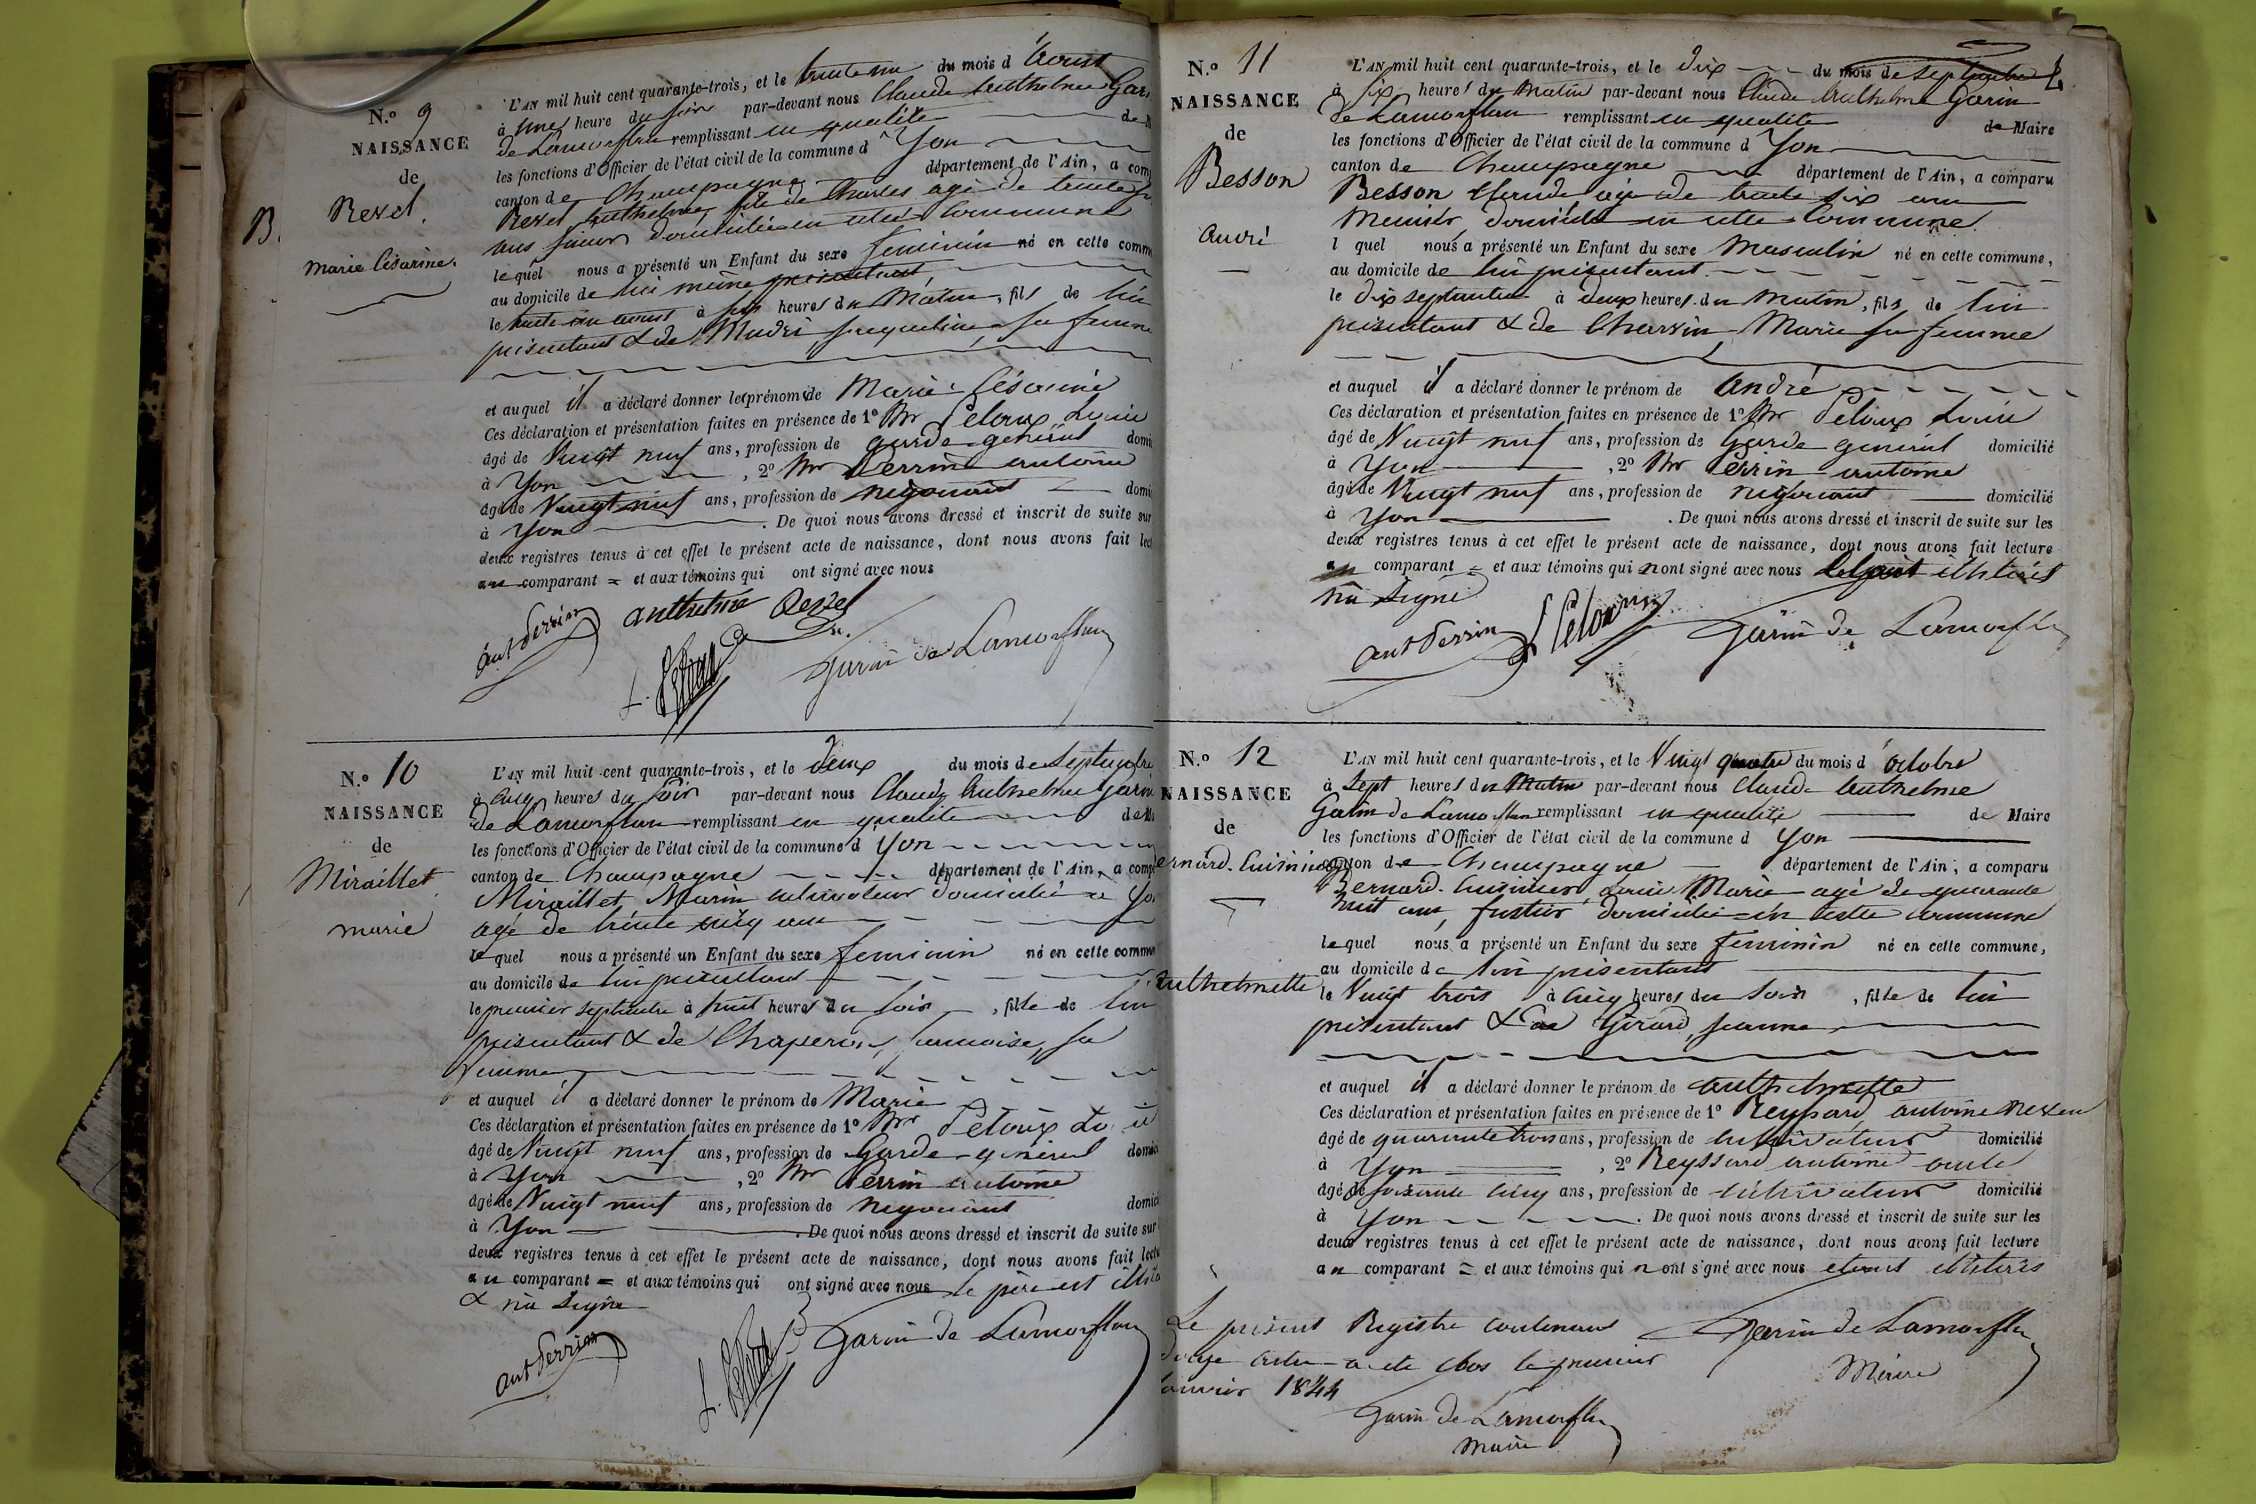 N.° 9
NAISSANCE
de
Rexet.
B.
Marie Césarine.
L'AN mil huit cent quarante-trois, et le trente un du mois d'Aoust
à une heure du soir par-devant nous Claude Anthelme Gar
de Lamorflan remplissant en qualité de M
les fonctions d'Officier de l'état civil de la commune d'Yon
canton de Champagne département de l'Ain, a com
Rexet Anthelme fils de Charles agé de trente
ans domicilié en cette Commune
lequel nous a présenté un Enfant du sexe feminin né en cette comm
au domicile de lui même présentant
le trente un aoust à six heures du Matin, fils de lui
présentant & de Andri Jacqueline sa femme
et auquel il a déclaré donner le prénom de Marie Césarine
Ces déclaration et présentation faites en présence de 1° Mr Peloux Louis
âgé de Vingt neuf ans, profession de garde général domi
à Yon, 2° Mr Perrin antoine
âgé de Vingt neuf ans, profession de négociant domi
à Yon. De quoi nous avons dressé et inscrit de suite sur
deux registres tenus à cet effet le présent acte de naissance, dont nous avons fait lec
au comparant = et aux témoins qui ont signé avec nous
ant Perrin anthelme Rexet
L. Peloux Garin de Lamorflan
N.° 10
NAISSANCE
de
Miraillet
marie
L'AN mil huit cent quarante-trois, et le Deux du mois de Septembre
à Cinq heures du soir par-devant nous Claude Anthelme Garin
de Lamorflan remplissant en qualité de M
les fonctions d'Officier de l'état civil de la commune d Yon
canton de Champagne département de l'Ain, a comp
Miraillet Marin cultivateur domicilié à Yo
agé de trente cinq ans
lequel nous a présenté un Enfant du sexe feminin né en cette commun
au domicile de lui présentant
le premier septembre à huit heures du soir, fille de lui
présentant & de Chaperon, francoise, sa
femme
et auquel il a déclaré donner le prénom de Marie
Ces déclaration et présentation faites en présence de 1° Mr Peloux Louis
âgé de Vingt neuf ans, profession de Garde général domic
à Yon, 2° Mr Perrin antoine
âgé de Vingt neuf ans, profession de négociant domic
à Yon. De quoi nous avons dressé et inscrit de suite sur
deux registres tenus à cet effet le présent acte de naissance, dont nous avons fait lectu
au comparant = et aux témoins qui ont signé avec nous le père est illité
& n'a signé
ant Perrin L. Peloux Garin de Lamorflan
N.° 11
NAISSANCE
de
Besson
André
L'AN mil huit cent quarante-trois, et le dix du mois de septembre
à six heures du Matin par-devant nous Claude Anthelme Garin
de Lamorflan remplissant en qualité de Maire
les fonctions d'Officier de l'état civil de la commune d Yon
canton de Champagne département de l'Ain, a comparu
Besson Claude agé de trente six ans
Meunier, domicilié en cette Commune.
l quel nous a présenté un Enfant du sexe Masculin né en cette commune,
au domicile de lui présentant
le dix septembre à deux heures du Matin, fils de lui
présentant & de Charvin Marie sa femme
et auquel il a déclaré donner le prénom de André
Ces déclaration et présentation faites en présence de 1° Mr Peloux Louis
âgé de Vingt neuf ans, profession de Garde général domicilié
à Yon, 2° Mr Perrin antoine
âgé de Vingt neuf ans, profession de négociant domicilié
à Yon. De quoi nous avons dressé et inscrit de suite sur les
deux registres tenus à cet effet le présent acte de naissance, dont nous avons fait lecture
au comparant = et aux témoins qui n ont signé avec nous illitéré
n'a signé
ant Perrin L Peloux Garin de Lamorflan
N.° 12
NAISSANCE
de
ernard-Cuisinier
anthelmette
L'AN mil huit cent quarante-trois, et le Vingt quatre du mois d'octobre
à Sept heures du Matin par-devant nous Claude Anthelme
Garin de Lamorflan remplissant en qualité de Maire
les fonctions d'Officier de l'état civil de la commune d Yon
canton de Champagne département de l'Ain, a comparu
Bernard-Cuisinier Louis Marie agé de quarante
huit ans, fustier domicilié en cette Commune
lequel nous a présenté un Enfant du sexe feminin né en cette commune,
au domicile de lui présentant
le Vingt trois à cinq heures du Soir, fille de lui
présentant & de Girard, jeanne
et auquel il a déclaré donner le prénom de anthelmette
Ces déclaration et présentation faites en présence de 1° Reyssard antoine neveu
âgé de quarante trois ans, profession de cultivateur domicilié
à Yon, 2° Reyssard antoine oncle
âgé de soixante cinq ans, profession de cultivateur domicilié
à Yon. De quoi nous avons dressé et inscrit de suite sur les
deux registres tenus à cet effet le présent acte de naissance, dont nous avons fait lecture
au comparant = et aux témoins qui n ont signé avec nous étant illitérés
Garin de Lamorflan
Maire
Le présent Registre contenant
douze actes a été clos le premier
Janvier 1844
Garin de Lamorflan
Maire